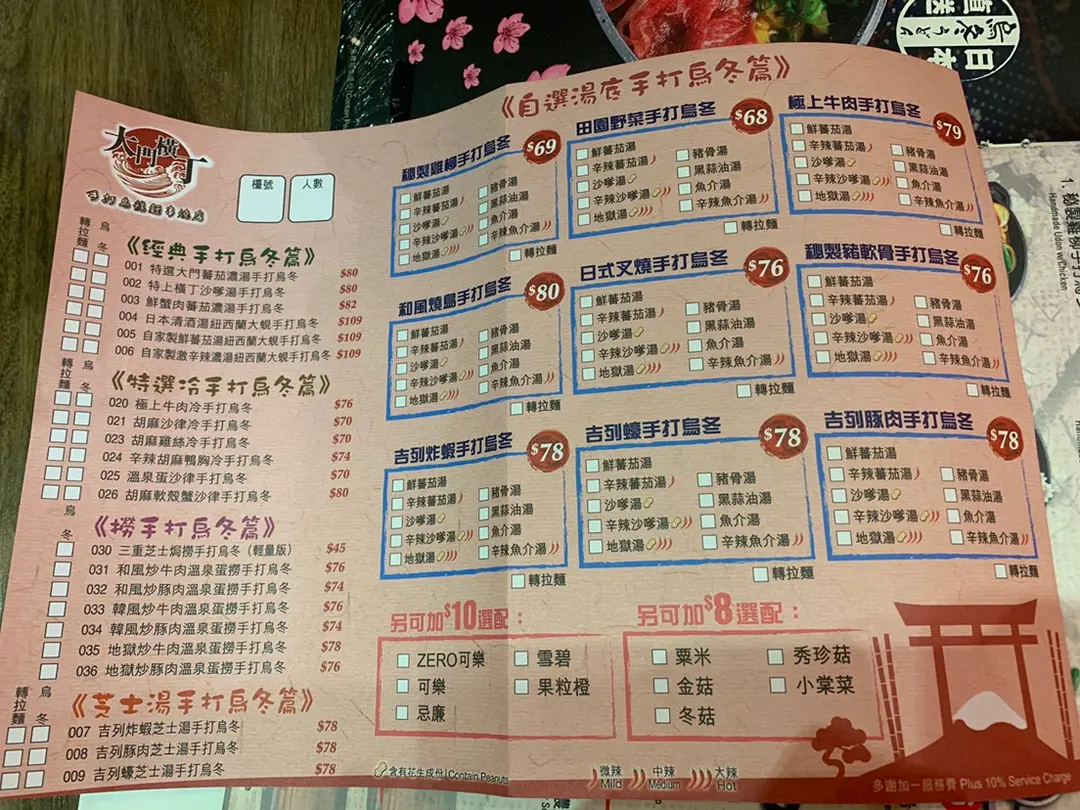 大門橫丁
手打烏冬麵專門店
檯號
人數
《經典手打烏冬篇》
轉拉麵
烏冬
001 特選大門蕃茄濃湯手打烏冬 $80
002 特上橫丁沙嗲湯手打烏冬 $80
003 鮮蟹肉蕃茄濃湯手打烏冬 $82
004 日本清酒湯紐西蘭大蜆手打烏冬 $109
005 自家製鮮蕃茄湯紐西蘭大蜆手打烏冬 $109
006 自家製激辛辣濃湯紐西蘭大蜆手打烏冬 $109
《特選冷手打烏冬篇》
轉拉麵
烏冬
020 極上牛肉冷手打烏冬 $76
021 胡麻沙律冷手打烏冬 $70
023 胡麻雞絲冷手打烏冬 $70
024 辛辣胡麻鴨胸冷手打烏冬 $74
025 溫泉蛋沙律手打烏冬 $70
026 胡麻軟殼蟹沙律手打烏冬 $80
《撈手打烏冬篇》
烏冬
030 三重芝士焗撈手打烏冬（輕量版） $45
031 和風炒牛肉溫泉蛋撈手打烏冬 $76
032 和風炒豚肉溫泉蛋撈手打烏冬 $74
033 韓風炒牛肉溫泉蛋撈手打烏冬 $76
034 韓風炒豚肉溫泉蛋撈手打烏冬 $74
035 地獄炒牛肉溫泉蛋撈手打烏冬 $78
036 地獄炒豚肉溫泉蛋撈手打烏冬 $76
《芝士湯手打烏冬篇》
轉拉麵
烏冬
007 吉列炸蝦芝士湯手打烏冬 $78
008 吉列豚肉芝士湯手打烏冬 $78
009 吉列蠔芝士湯手打烏冬 $78
《自選湯底手打烏冬篇》
秘製雞柳手打烏冬 $69
鮮蕃茄湯
辛辣蕃茄湯
沙嗲湯
辛辣沙嗲湯
地獄湯
豬骨湯
黑蒜油湯
魚介湯
辛辣魚介湯
轉拉麵
田園野菜手打烏冬 $68
鮮蕃茄湯
辛辣蕃茄湯
沙嗲湯
辛辣沙嗲湯
地獄湯
豬骨湯
黑蒜油湯
魚介湯
辛辣魚介湯
轉拉麵
極上牛肉手打烏冬 $79
鮮蕃茄湯
辛辣蕃茄湯
沙嗲湯
辛辣沙嗲湯
地獄湯
豬骨湯
黑蒜油湯
魚介湯
辛辣魚介湯
轉拉麵
和風燒鳥手打烏冬 $80
鮮蕃茄湯
辛辣蕃茄湯
沙嗲湯
辛辣沙嗲湯
地獄湯
豬骨湯
黑蒜油湯
魚介湯
辛辣魚介湯
轉拉麵
日式叉燒手打烏冬 $76
鮮蕃茄湯
辛辣蕃茄湯
沙嗲湯
辛辣沙嗲湯
地獄湯
豬骨湯
黑蒜油湯
魚介湯
辛辣魚介湯
轉拉麵
秘製豬軟骨手打烏冬 $76
鮮蕃茄湯
辛辣蕃茄湯
沙嗲湯
辛辣沙嗲湯
地獄湯
豬骨湯
黑蒜油湯
魚介湯
辛辣魚介湯
轉拉麵
吉列炸蝦手打烏冬 $78
鮮蕃茄湯
辛辣蕃茄湯
沙嗲湯
辛辣沙嗲湯
地獄湯
豬骨湯
黑蒜油湯
魚介湯
辛辣魚介湯
轉拉麵
吉列蠔手打烏冬 $78
鮮蕃茄湯
辛辣蕃茄湯
沙嗲湯
辛辣沙嗲湯
地獄湯
豬骨湯
黑蒜油湯
魚介湯
辛辣魚介湯
轉拉麵
吉列豚肉手打烏冬 $78
鮮蕃茄湯
辛辣蕃茄湯
沙嗲湯
辛辣沙嗲湯
地獄湯
豬骨湯
黑蒜油湯
魚介湯
辛辣魚介湯
轉拉麵
另可加$10選配：
ZERO可樂
可樂
忌廉
雪碧
果粒橙
另可加$8選配：
粟米
金菇
冬菇
秀珍菇
小棠菜
含有花生成份|Contain Peanuts
微辣 Mild
中辣 Medium
大辣 Hot
多謝加一服務費 Plus 10% Service Charge
日本
直送
Handmade Udon w/Chicken